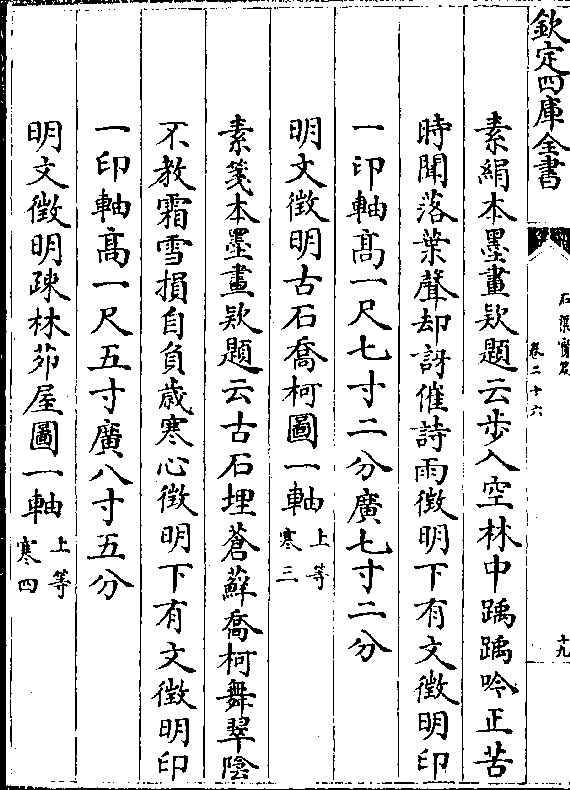 欽定四庫全書
石渠寶笈
卷二十六
十九
素絹本墨畫欵題云步入空林中踽踽吟正苦
時聞落葉聲却訝催詩雨徵明下有文徵明印
一印軸髙一尺七寸二分廣七寸二分
明文徵明古石喬柯圖一軸上等
寒三
素箋本墨畫欵題云古石埋蒼蘚喬柯舞翠陰
不教霜雪損自負歳寒心徵明下有文徵明印
一印軸髙一尺五寸廣八寸五分
明文徵明疎林茆屋圖一軸上等
寒四